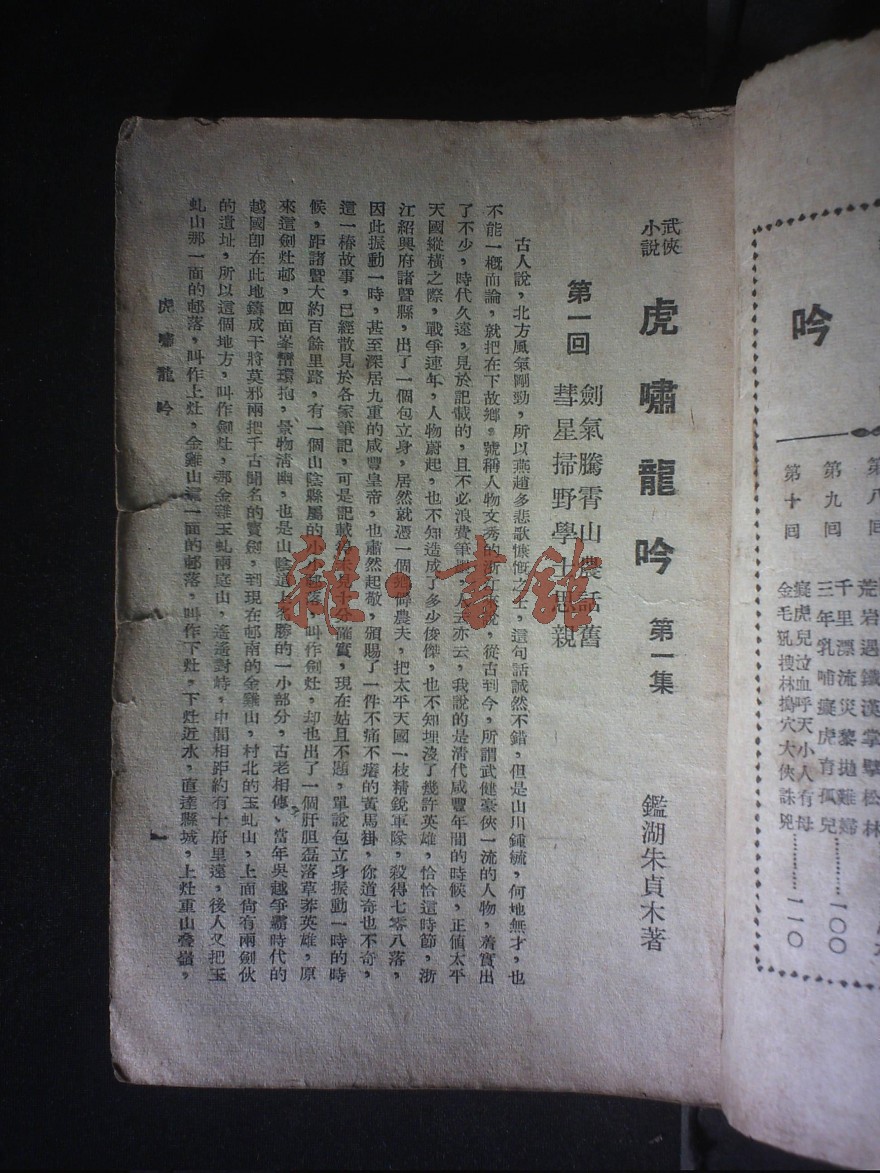 吟
第八回
荒岩遇鐵漢掌擘松林
第九回
千里漂流災黎拋雛婦
三年乳哺瘞虎育孤兒…………一〇〇
第十回
瘞虎兒泣血呼天小人有母
金毛犼搜林搗穴大俠誅兇…………一一〇
武俠小說
虎嘯龍吟
第一集
鑑湖朱貞木著
第一回
劍氣騰霄山農話舊
彗星掃野學士思親
古人說，北方風氣剛勁，所以燕趙多悲歌慷慨之士，這句話誠然不錯，但是山川鍾毓，何地無才，也
不能一概而論，就把在下故鄉。號稱人物文秀的浙江來說，從古到今，所謂武健豪俠一流的人物，着實出
了不少，時代久遠，見於記載的，且不必浪費筆墨人云亦云，我說的是清代咸豐年間的時候，正值太平
天國縱橫之際，戰爭連年，人物蔚起，也不知造成了多少俊傑，也不知埋沒了幾許英雄，恰恰這時節，浙
江紹興府諸暨縣，出了一個包立身，居然就憑一個鄉僻農夫，把太平天國一枝精銳軍隊，殺得七零八落，
因此振動一時，甚至深居九重的咸豐皇帝，也肅然起敬，頒賜了一件不痛不癢的黃馬褂，你道奇也不奇，
這一椿故事，已經散見於各家筆記，可是記載得未見十分確實，現在姑且不題，單說包立身振動一時的時
候，距諸暨大約百餘里路，有一個山陰縣屬的小小邨落，叫作劍灶，却也出了一個肝胆磊落草莽英雄，原
來這劍灶邨，四面峯巒環抱，景物清幽，也是山陰道上名勝的一小部分，古老相傳，當年吳越爭霸時代的
越國卽在此地鑄成干將莫邪兩把千古聞名的寶劍，到現在邨南的金雞山，村北的玉虬山，上面尙有兩劍伙
的遺址，所以這個地方，叫作劍灶，那金雞玉虬兩座山，遙遙對峙，中間相距約有十府里遠，後人又把玉
虬山那一面的邨落，叫作上灶，金雞山這一面的邨落，叫作下灶，下灶近水，直達縣城，上灶重山疊嶺，
虎嘯龍吟
一
雜·書館